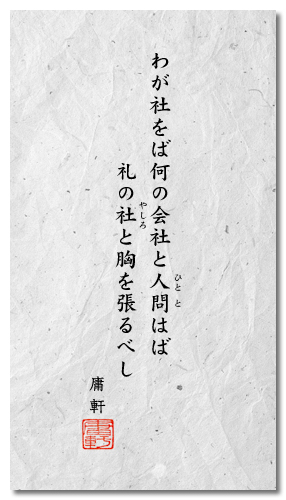 わが社をば何の会社と人問はば
ひと と
礼の社と胸を張るべし
やしろ
庸軒